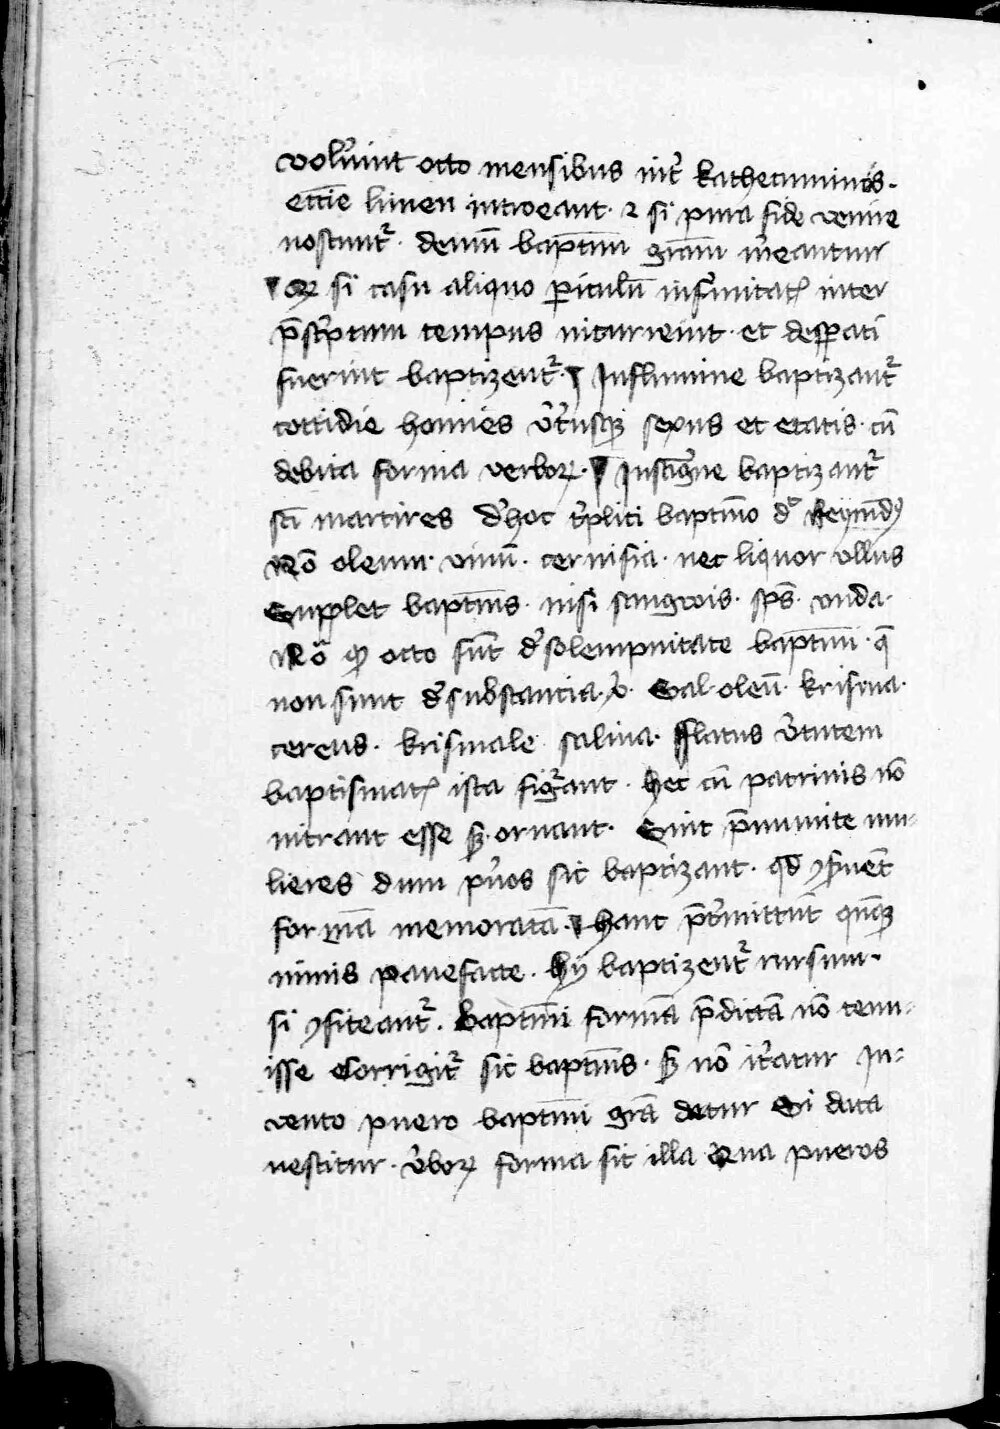 volu̾int octo mensibus int̾ kathecuminos.
ecc̄ie limen introeant. ⁊ si pura fide venire
noscunt᷑. demū bapt̄m̄ grām m̾eantur
¶ Qꝛ si casu aliquo ꝑiculū infirmitat̾ inter
p̄sc̾ptum tempus incurrerint. et desꝑati
fuerint baptizent᷑. ¶ Influmine baptizant᷑
cottidie homīes vt̾usqꝫ sexus et etatis. cū
debita forma verboꝝ. ¶ Insāgne baptizant᷑
scī martires d̾hoc t̾plici baptīmo dᵗ Reymūdꝰ
Nō oleum. vinū. ceruisia. nec liquor vllus
Supplet baptīmus. nisi sangwis. sp̄s. vnda.
Nōᵃ ꝙ octo sūt d̾solempnitate baptīmi. q̄
non sunt d̾substantia. Sal. oleū. krisma.
cereus. krismale saliua. fflatus v̾tutem
baptismat̾ ista figurant. hec cū patrinis nō
intrant esse sꝫ. ornant. Sint p̄munite mu-
lieres dum pu̾os sic baptizant. qd ꝯseruēt
formā memoratā. ¶ hanc p̄t̾mittūt qn̄qꝫ
nimis pauefacte. Hij baptizent᷑ rursum.
si ꝯfiteant᷑. baptīmi formā p̄dictā nō tenu-
isse Corrigit᷑ sic baptīmus. sꝫ nō it̾atur In-
vento puero baptīmi grā detur Si data
nescitur. v̾boꝝ forma sit illa Qua pueros